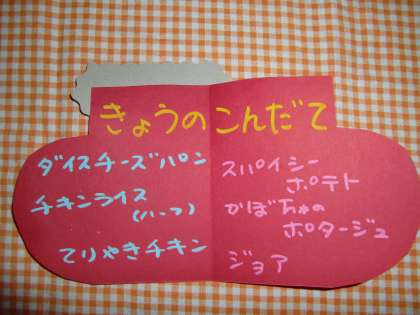 きょうのこんだて
ダイスチーズパン
チキンライス
(ハーフ)
てりやきチキン
スパイシー
ポテト
かぼちゃの
ポタージュ
ジョア